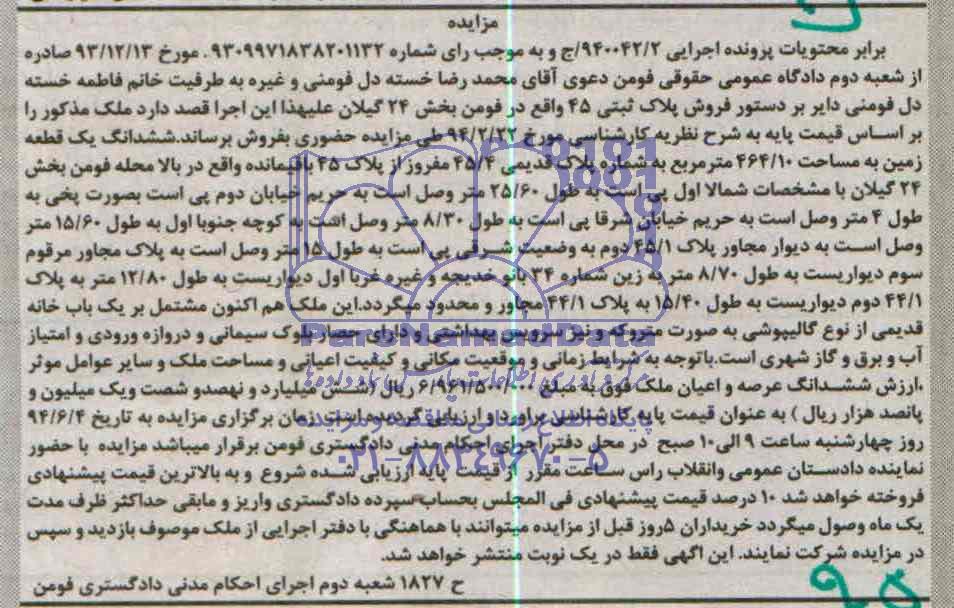 مزایده
برابر محتویات پرونده اجرایی ۹۴۰۰۴۲/۲/ج و به موجب رای شماره ۹۳۰۹۹۷۱۸۳۸۲۰۱۱۳۲ . مورخ ۹۳/۱۲/۱۳ صادره
از شعبه دوم دادگاه عمومی حقوقی فومن دعوی آقای محمد رضا خسته دل فومنی و غیره به طرفیت خانم فاطمه خسته
دل فومنی دایر بر دستور فروش پلاک ثبتی ۴۵ واقع در فومن بخش ۲۴ گیلان علیهذا این اجرا قصد دارد ملک مذکور را
بر اساس قیمت پایه به شرح نظریه کارشناسی مورخ ۹۴/۲/۲۲ طی مزایده حضوری بفروش برساند.ششدانگ یک قطعه
زمین به مساحت ۴۶۴/۱۰ مترمربع به شماره پلاک قدیمی ۴۵/۴ مفروز از پلاک ۴۵ باقیمانده واقع در بالا محله فومن بخش
۲۴ گیلان با مشخصات شمالا اول پی است به طول ۲۵/۶۰ متر وصل است به حریم خیابان دوم پی است بصورت پخی به
طول ۴ متر وصل است به حریم خیابان شرقا پی است به طول ۸/۳۰ متر وصل است به کوچه جنوبا اول به طول ۱۵/۶۰ متر
وصل است به دیوار مجاور پلاک ۴۵/۱ دوم به وضعیت شرقی پی است به طول ۱۵ متر وصل است به پلاک مجاور مرقوم
سوم دیواریست به طول ۸/۷۰ متر به زین شماره ۳۴ بانو خدیجه و غیره غربا اول دیواریست به طول ۱۲/۸۰ متر به پلاک
۴۴/۱ دوم دیواریست به طول ۱۵/۴۰ به پلاک ۴۴/۱ مجاور و محدود میگردد.این ملک هم اکنون مشتمل بر یک باب خانه
قدیمی از نوع گالیپوشی به صورت متروکه و نیز سرویس بهداشتی و دارای حصار بلوک سیمانی و دروازه ورودی و امتیاز
آب و برق و گاز شهری است.باتوجه به شرایط زمانی و موقعیت مکانی و کیفیت اعیانی و مساحت ملک و سایر عوامل موثر
،ارزش ششدانگ عرصه و اعیان ملک فوق به مبلغ ۶/۹۶۱/۵۰۰/۰۰۰ ریال (شش میلیارد و نهصدو شصت ویک میلیون و
پانصد هزار ریال ) به عنوان قیمت پایه کارشناسی براورد و ارزیابی گردیده است.زمان برگزاری مزایده به تاریخ ۹۴/۶/۴
روز چهارشنبه ساعت ۹ الی۱۰ صبح در محل دفتر اجرای احکام مدنی دادگستری فومن برقرار میباشد مزایده با حضور
نماینده دادستان عمومی وانقلاب راس ساعت مقرر از قیمت پایه ارزیابی شده شروع و به بالاترین قیمت پیشنهادی
فروخته خواهد شد ۱۰ درصد قیمت پیشنهادی فی المجلس بحساب سپرده دادگستری واریز و مابقی حداکثر ظرف مدت
یک ماه وصول میگردد خریداران ۵روز قبل از مزایده میتوانند با هماهنگی با دفتر اجرایی از ملک موصوف بازدید و سپس
در مزایده شرکت نمایند. این اگهی فقط در یک نوبت منتشر خواهد شد.
ح ۱۸۲۷ شعبه دوم اجرای احکام مدنی دادگستری فومن
ParsNamadData
پایگاه اطلاع رسانی مناقصه و مزایده
۰۲۱-۸۸۳۴۹۶۷۰-۵